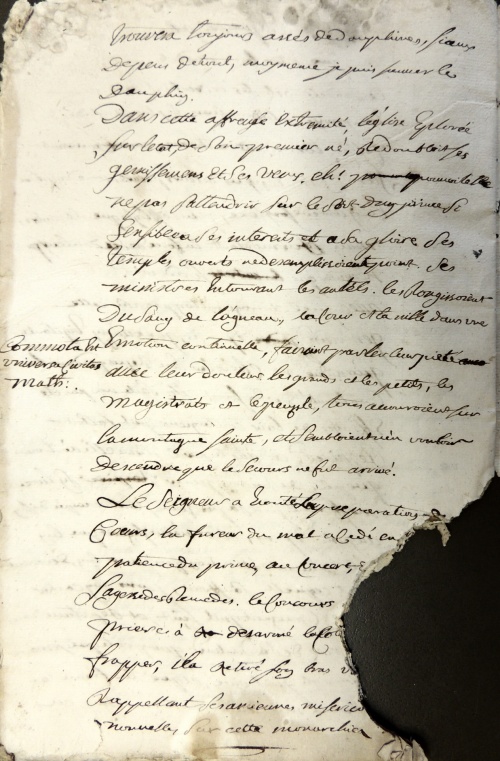 trouvera toujours assés de dauphins, si aux
depens de tout, moymeme je puis sauver le
Dauphin.
Dans cette affreuse Extremité, l'église Eplorée
sur l'etat de son premier né, redoubloit ses
gemissemens et ses vœux. eh!
ne pas s'attendrir sur le sort d'un prince si
sensible a ses interets et a la gloire. Ses
temples ouverts ne desemplissoient point. Ses
ministres entourant les autels. les Rougissoient
Du sang de l'agneau, la Cour et la ville dans une
Emotion continuelle, faisant parler leur pieté
avec leur douleur, les grands et les petits, les
magistrats et le peuple, tous accouroient sur
la montagne sainte, et sembloient n'en vouloir
descendre que le secours ne fut arrivé.
Commota Est
universa Civitas
Math:.
Le Seigneur a Ecouté la preparation
Cœurs, la fureur du mal a Cedé
patience du prince, au
Sagesse des Remedes. le Concours
prieres a desarmé le
frapper, il a retiré son bras
Rappellant ses anciennes
nouvelles sur cette monarchie